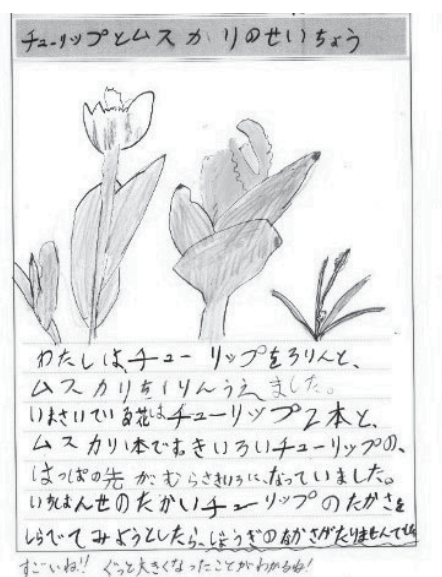 チューリップとムスカリのせいちょう
わたしはチューリップをろりんと、
ムスカリを1りんうえました。
いまさいている花はチューリップ2本と、
ムスカリ1本でききいろいチューリップの、
はっぱの先が、むらさきいろに、なっていました。
いちばんせのたかいチューリップのたかさを
しらべてみようとしたら、じょうぎのながさがたりませんでした
すごいね!! ぐっと大きくなったことがわかるね!